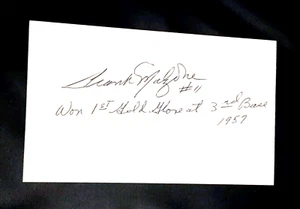 Frank Malzone
#11
Won 1st Gold Glove at 3rd Base
1957